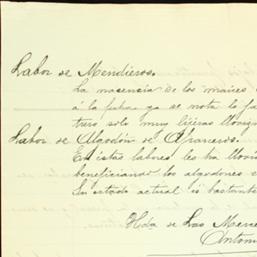 Labor de Mendieros.
La nacencia de los maices
á la fecha ya se nota lo pa
trero solo muy lijeras lloviznas
Labor de Algodón de Afraneros.
En estas labores les ha llovi
beneficiando los algodones e
Su estado actual es bastante
Hda de Las Merce
Antoni